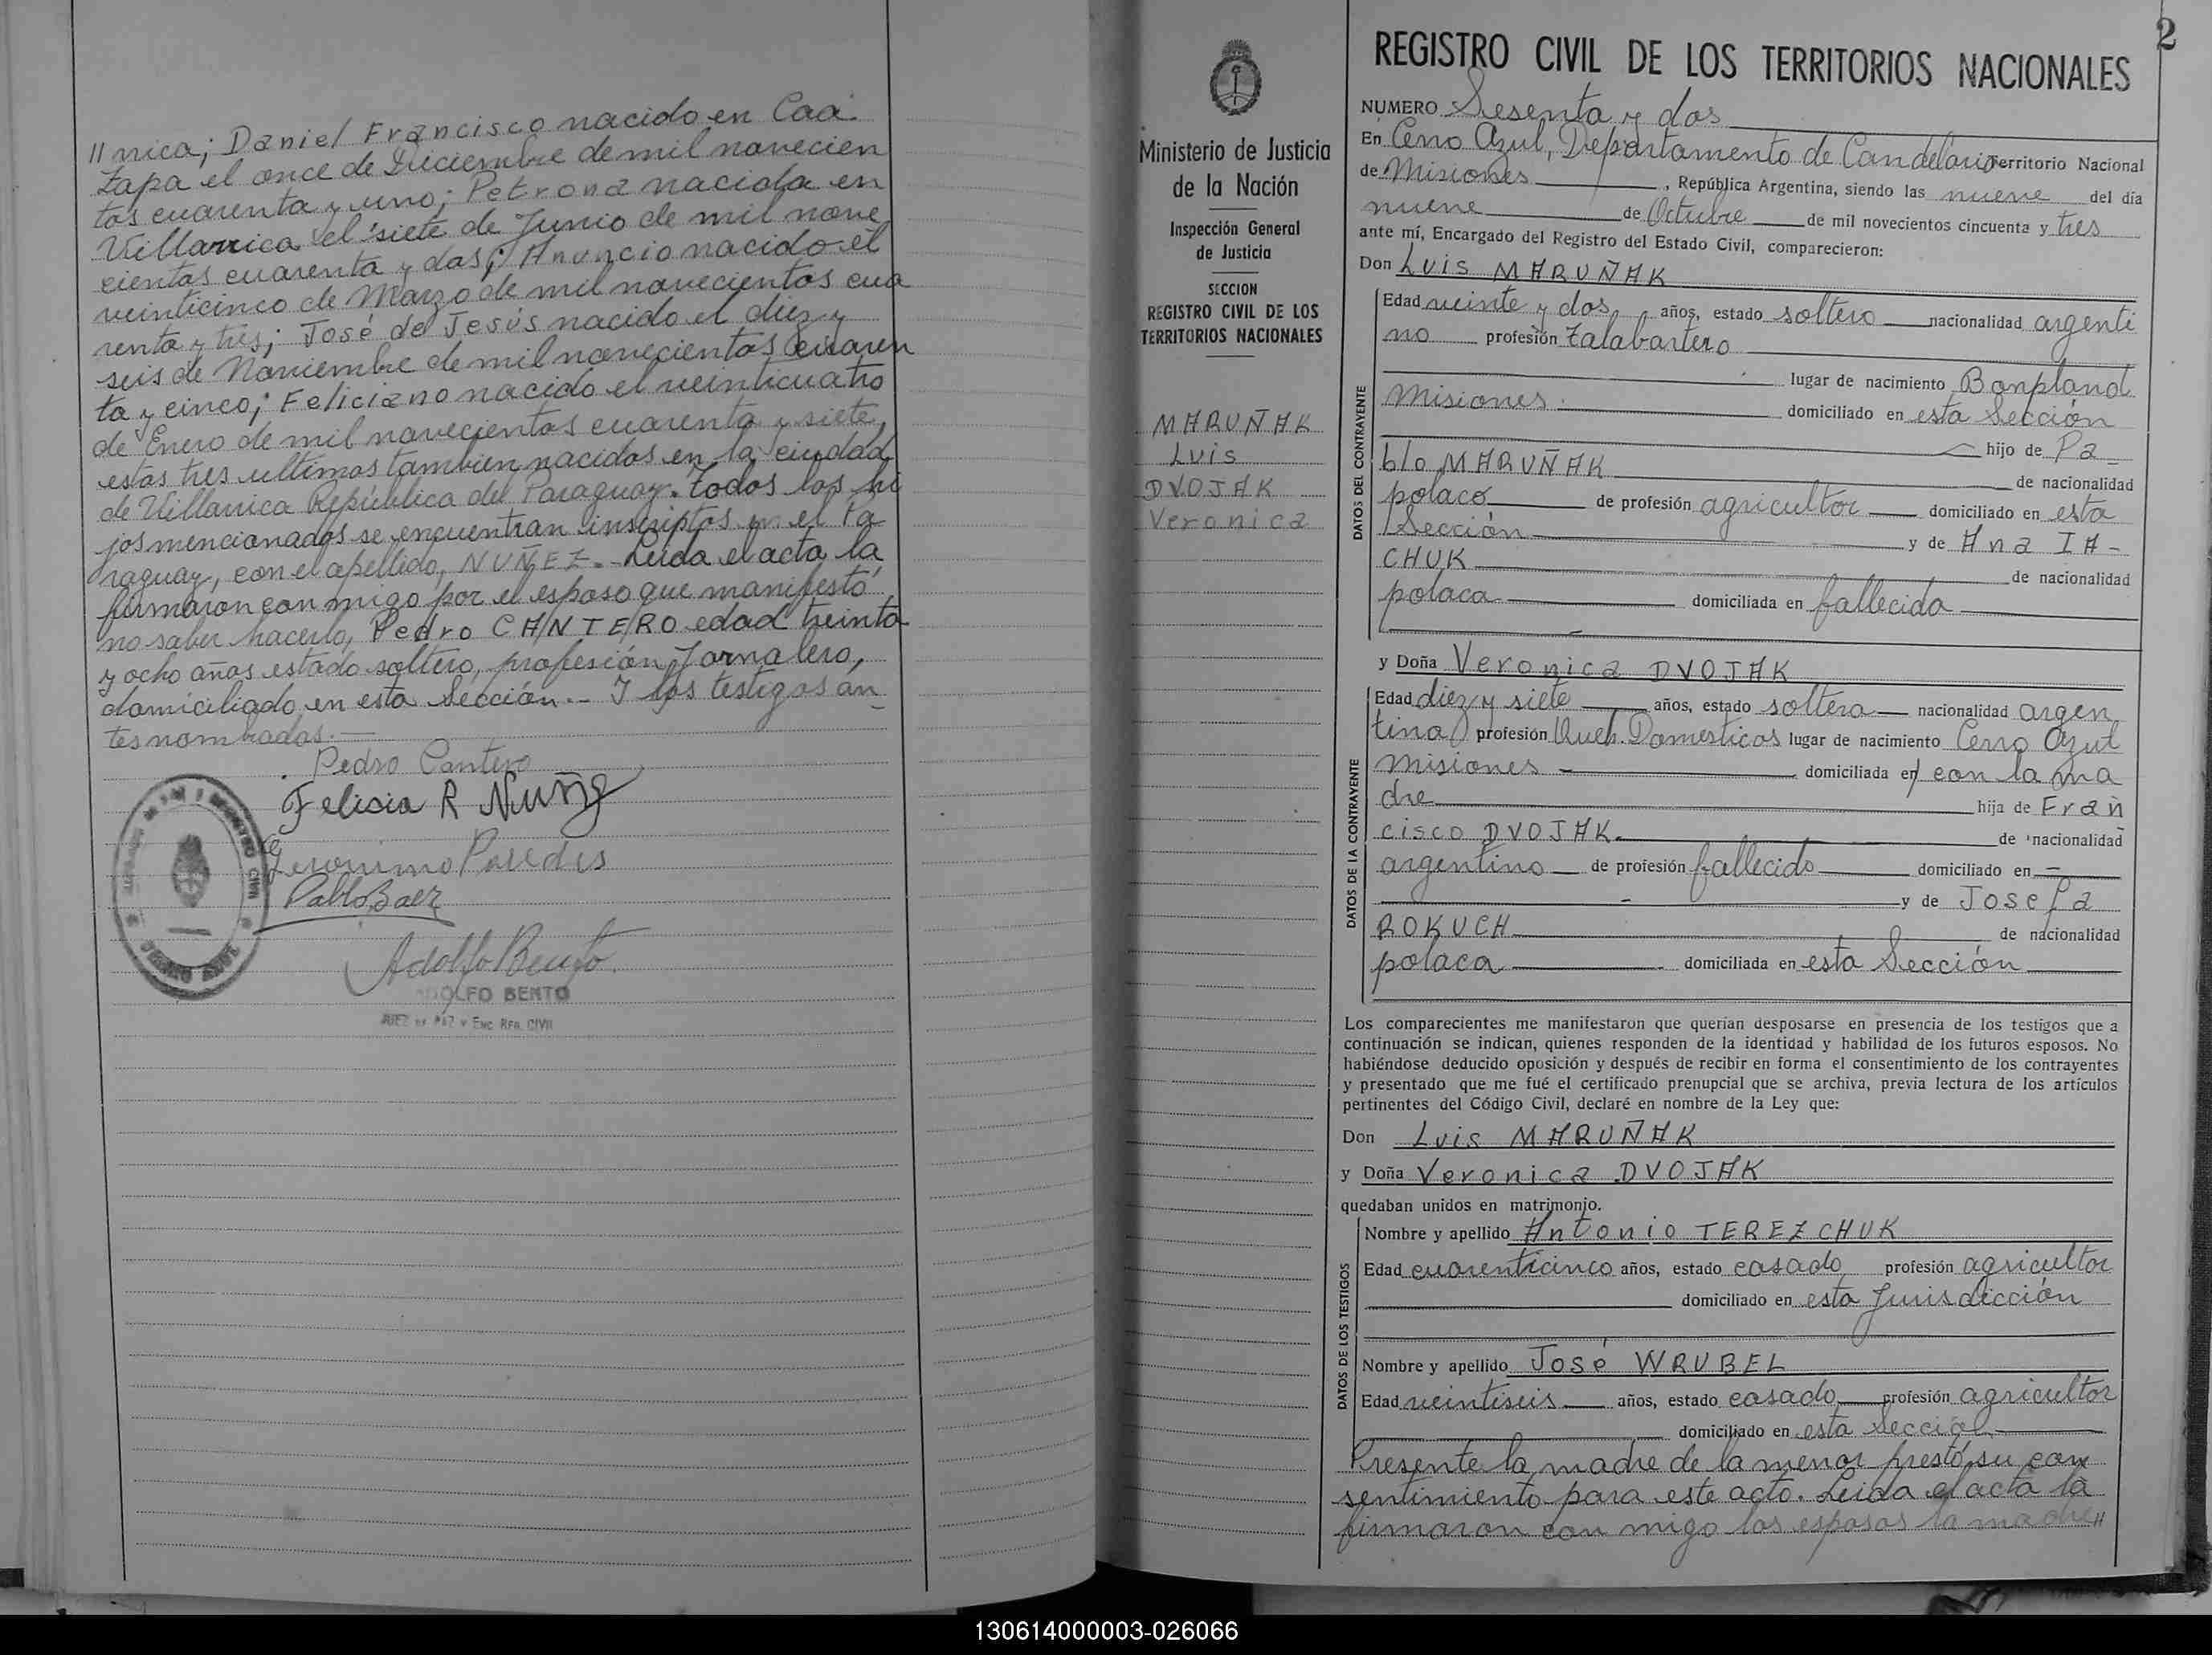 // nica; Daniel Francisco nacido en Caá
zapa el once de Diciembre de mil novecien
tos cuarenta y uno; Petrona nacida en
Villarrica el siete de Junio de mil nove
cientos cuarenta y dos; Anuncio nacido el
veinticinco de Marzo de mil novecientos cua
renta y tres; José de Jesús nacido el diez y
seis de Noviembre de mil novecientos cuaren
ta y cinco; Feliciano nacido el veinticuatro
de Enero de mil novecientos cuarenta y siete,
estos tres ultimos tambien nacidos en la ciudad
de Villarrica República del Paraguay. todos los hi
jos mencionados se encuentran inscriptos en el Pa
raguay, con el apellido, NUÑEZ.- Leida el acta la
firmaron con migo por el esposo que manifestó
no saber hacerlo, Pedro CANTERO edad treinta
y ocho años estado soltero, profesión Jornalero,
domiciliado en esta Sección.- Y los testigos an
tes nombrados.-
Pedro Cantero
Felicia R Nuñez
Geronimo Paredes
Pablo Baez
Adolfo Bento
ADOLFO BENTO
JUEZ DE PAZ y Enc. Reg. CIVIL
2
Ministerio de Justicia
de la Nación
Inspección General
de Justicia
SECCION
REGISTRO CIVIL DE LOS
TERRITORIOS NACIONALES
MARUÑAK
Luis
DVOJAK
Veronica
REGISTRO CIVIL DE LOS TERRITORIOS NACIONALES
NUMERO Sesenta y dos
En Cerro Azul, Departamento de Candelaria Territorio Nacional
de Misiones, República Argentina, siendo las nueve del día
nueve de Octubre de mil novecientos cincuenta y tres
ante mí, Encargado del Registro del Estado Civil, comparecieron:
Don Luis MARUÑAK
DATOS DEL CONTRAYENTE
Edad veinte y dos años, estado soltero nacionalidad argenti
no profesión talabartero
lugar de nacimiento Bonpland
Misiones. domiciliado en esta Sección
hijo de Pa-
blo MARUÑAK de nacionalidad
polaco de profesión agricultor domiciliado en esta
Sección y de Ana IA-
CHUK de nacionalidad
polaca domiciliada en fallecida
y Doña Veronica DVOJAK
DATOS DE LA CONTRAYENTE
Edad diez y siete años, estado soltera nacionalidad argen
tina profesión Queh. Domesticos lugar de nacimiento Cerro Azul
Misiones domiciliada en con la ma
dre hija de Fran
cisco DVOJAK. de nacionalidad
argentino de profesión fallecido domiciliado en -
y de Josefa
ROKUCH de nacionalidad
polaca domiciliada en esta Sección
Los comparecientes me manifestaron que querían desposarse en presencia de los testigos que a
continuación se indican, quienes responden de la identidad y habilidad de los futuros esposos. No
habiéndose deducido oposición y después de recibir en forma el consentimiento de los contrayentes
y presentado que me fué el certificado prenupcial que se archiva, previa lectura de los artículos
pertinentes del Código Civil, declaré en nombre de la Ley que:
Don Luis MARUÑAK
y Doña Veronica DVOJAK
quedaban unidos en matrimonio.
DATOS DE LOS TESTIGOS
Nombre y apellido Antonio TEREZCHUK
Edad cuarenticinco años, estado casado profesión agricultor
domiciliado en esta Jurisdicción
Nombre y apellido José WRUBEL
Edad veintiseis años, estado casado profesión agricultor
domiciliado en esta Sección
Presente la madre de la menor prestó su con
sentimiento para este acto. Leida el acta la
firmaron con migo los esposos la madre//
130614000003-026066